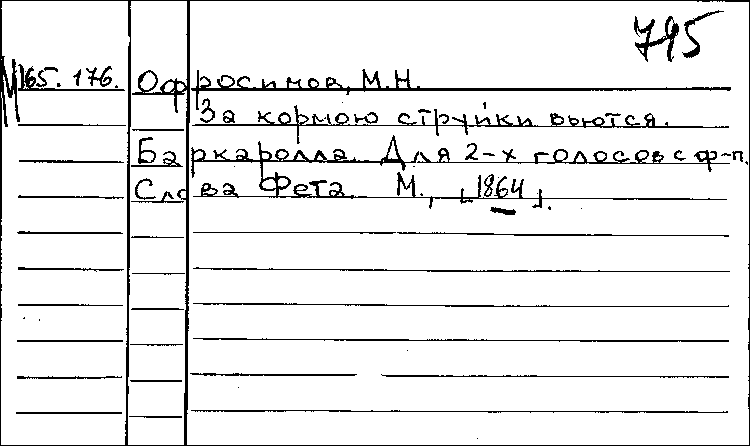 795
М165.176. Офросимов, М.Н.
За кормою струйки вьются.
Баркаролла. Для 2-х голосов с ф-п.
Слова Фета. М., [1864].